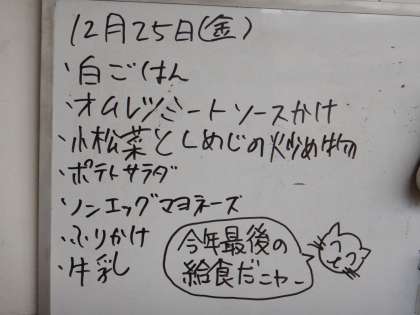 12月25日(金)
・白ごはん
・オムレツミートソースかけ
・小松菜としめじの炒め物
・ポテトサラダ
・ノンエッグマヨネーズ
・ふりかけ
・牛乳
今年最後の
給食だニャー